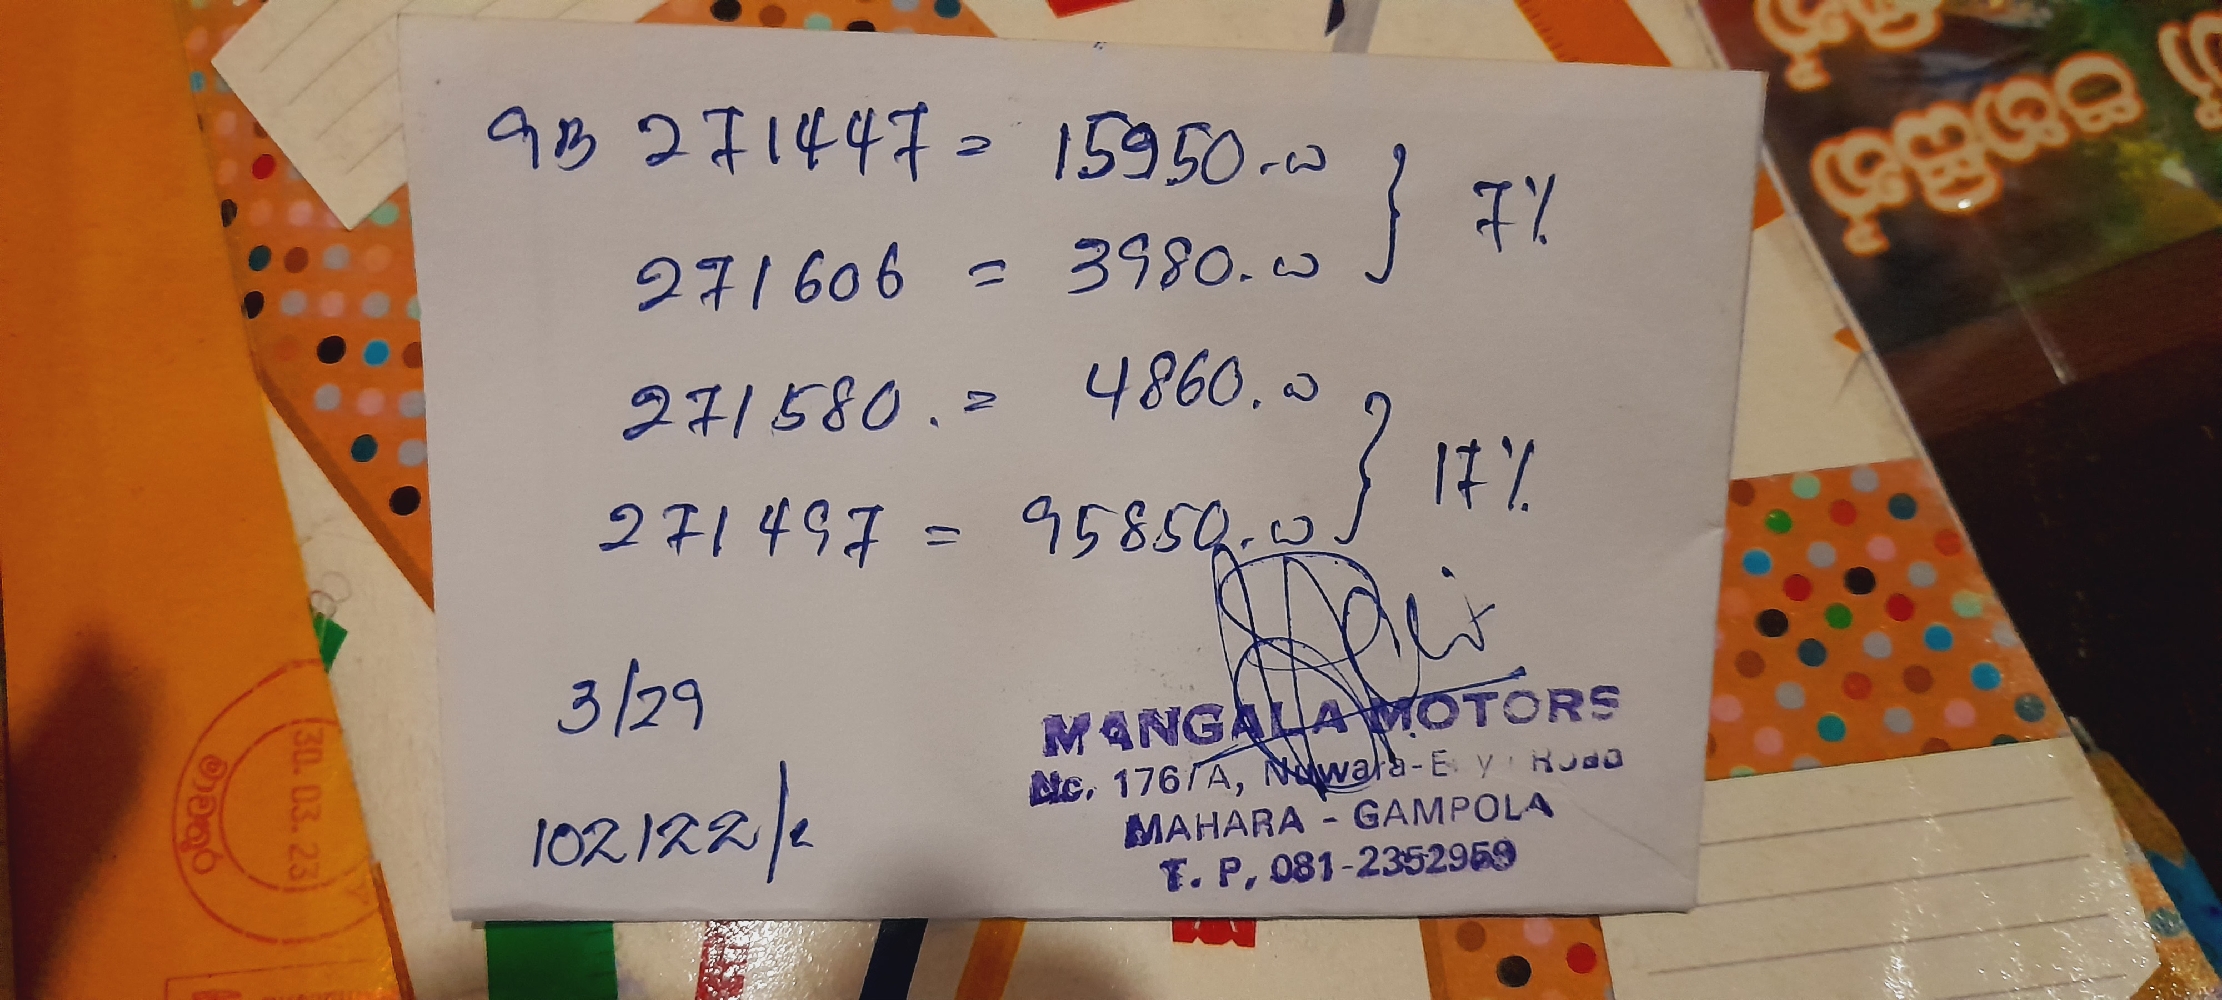 GB 271447 = 15950.00 } 7%
271606 = 3980.00
271580. = 4860.00 } 17%
271497 = 95850.00
3/29
102122/2
MANGALA MOTORS
No. 176/A, Nuwara-E y Road
MAHARA - GAMPOLA
T. P, 081-2352959
30.03.23